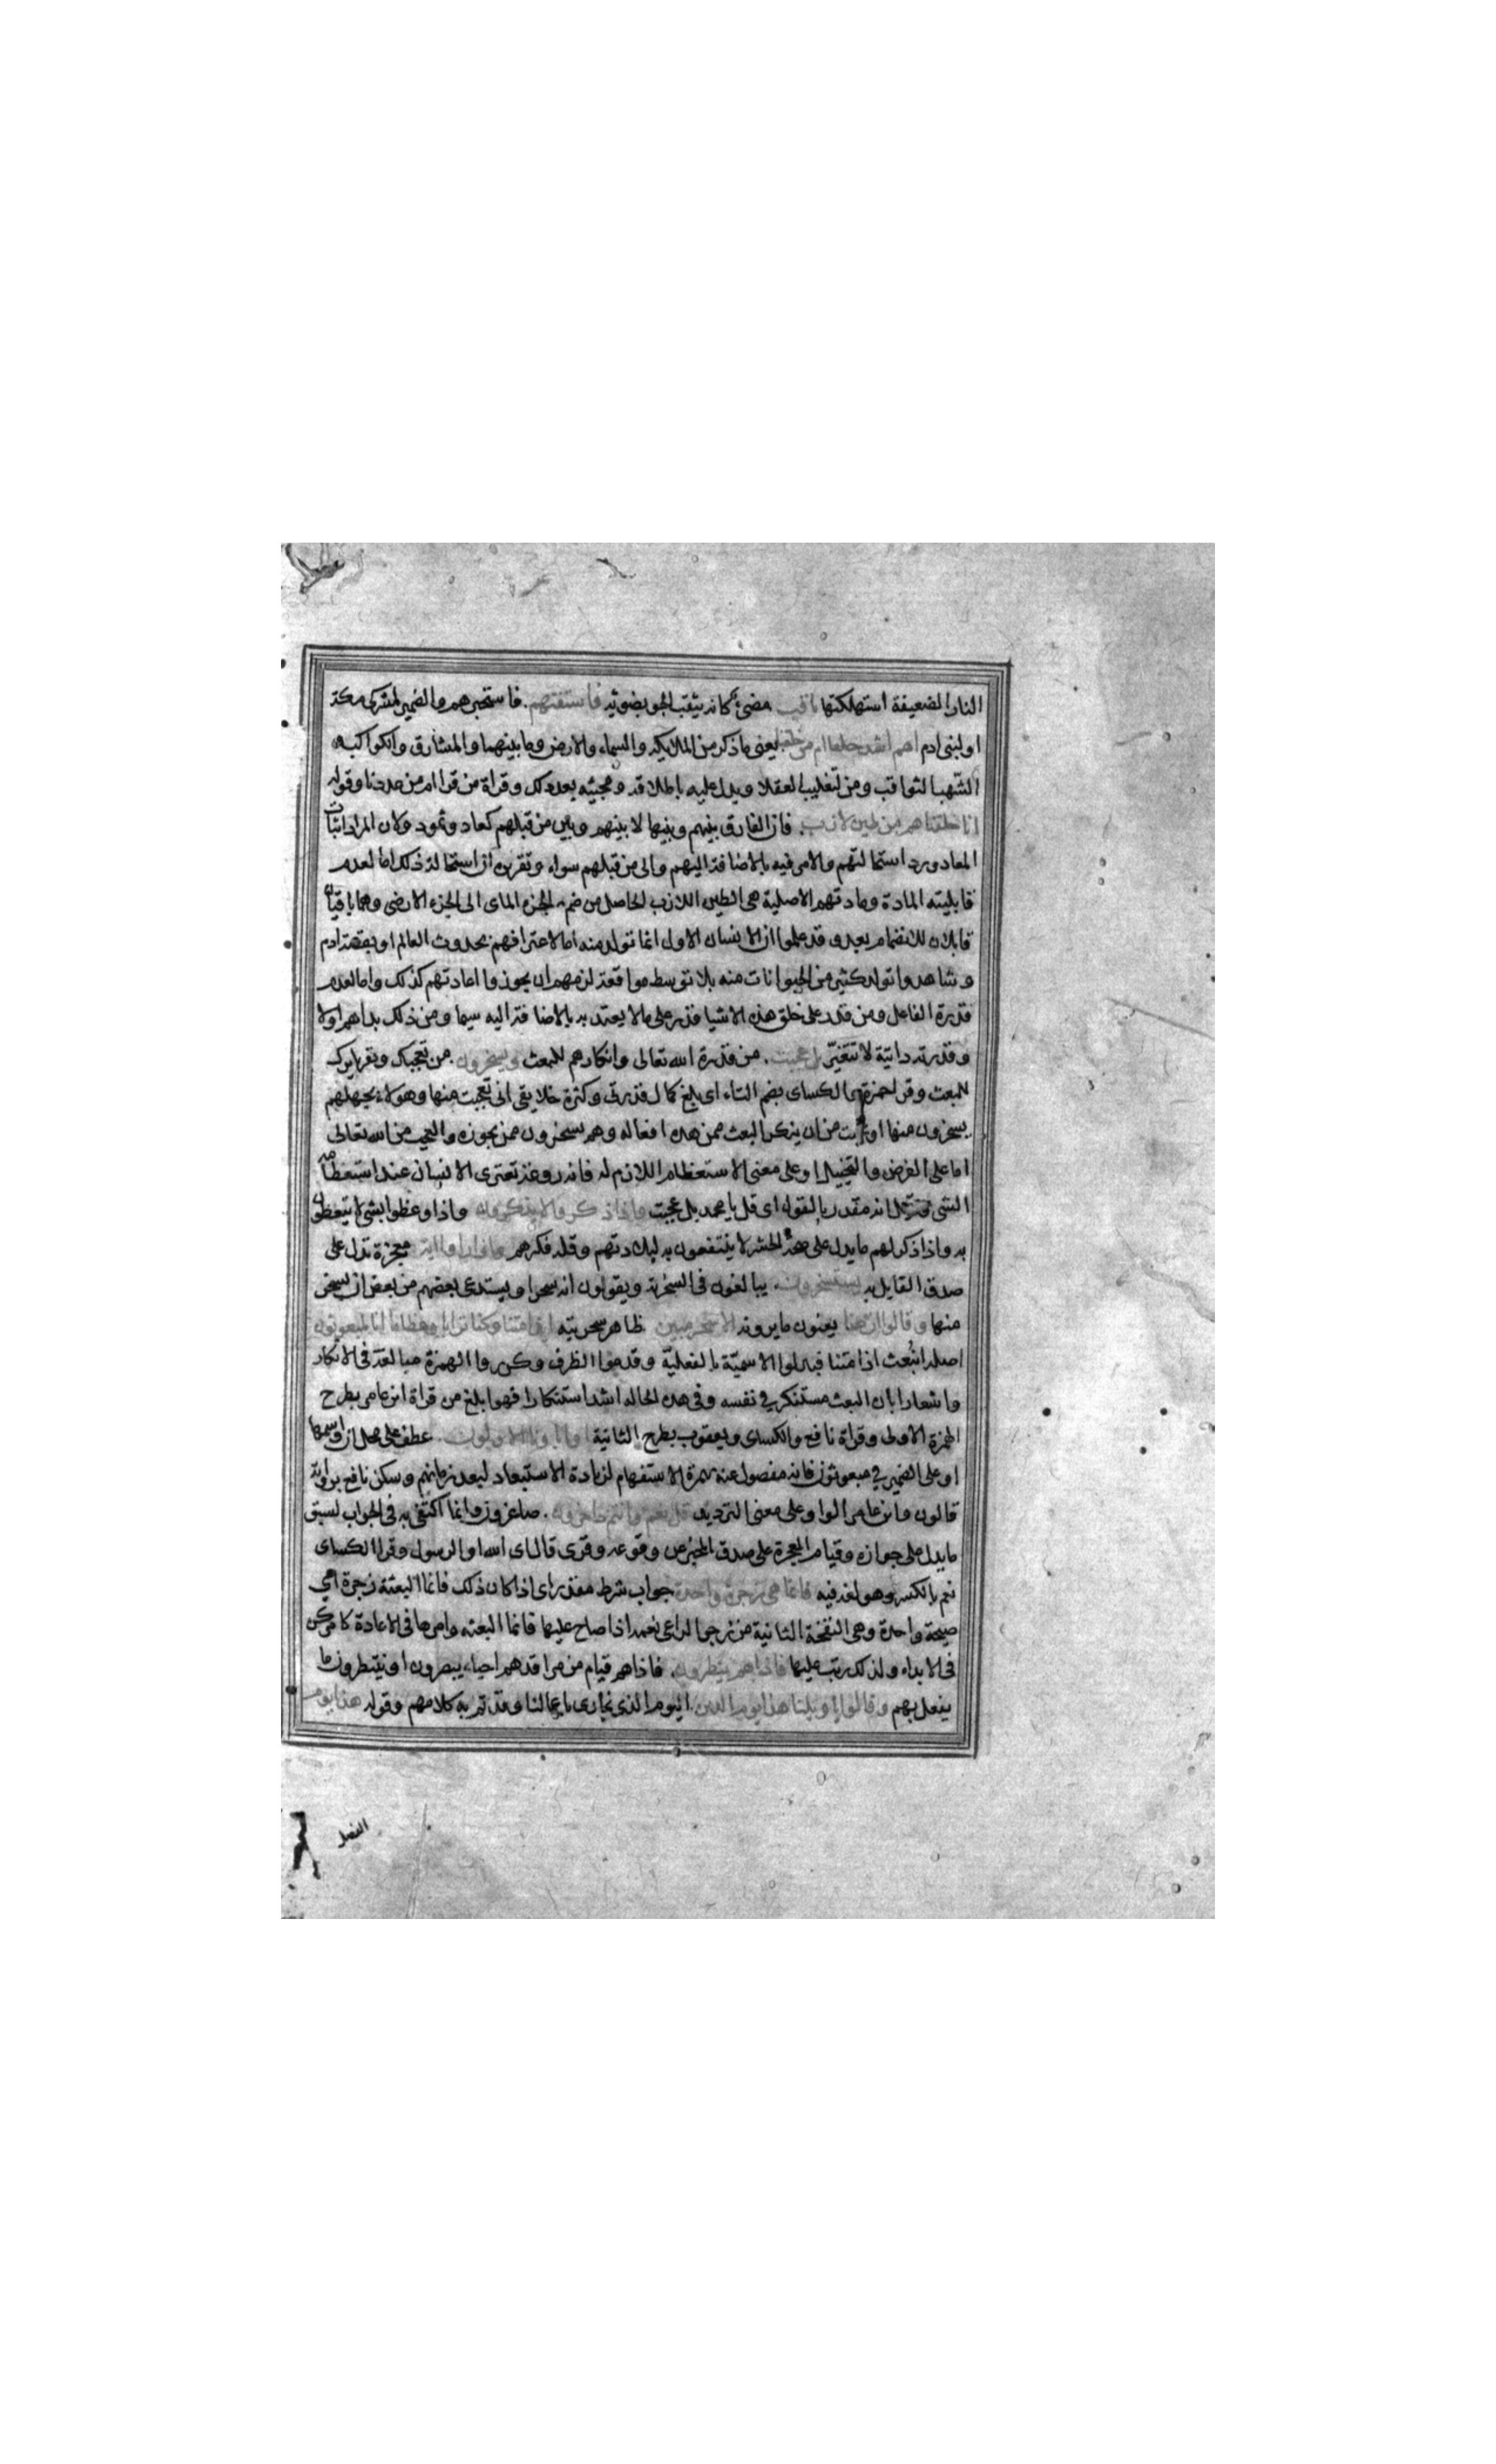 النار الضعيفة استهلكتها ثاقب مضئ كانه يثقب الجو بضوئه فاستفتهم. فاستخبرهم والضمير لمشركى مكة
او لبنى ادم اهم اشد خلقا ام من خلقنا يعنى ما ذكر من الملايكة والسماء والارض وما بينهما والمشارق والكواكب
الشهب الثواقب ومن لتغليب العقلا ويدل عليه باطلاقه ومجيئه بعد ذلك وقراة من قرا ام من عددنا وقوله
انا خلقناهم من طين لازب. فان الفارق بينهم وبينها لا بينهم وبين من قبلهم كعاد وثمود ولان المراد اثبات
المعاد ورد استحالتهم والامر فيه بالاضافة اليهم والى من قبلهم سواء وتقريره ان استحالة ذلك اما لعدم
قابليته المادة ومادتهم الاصلية هى الطين اللازب الحاصل من ضم الجزء المائ الى الجزء الارضى وهما باقيان
قابلان للانضمام بعد وقد علموا ان الانسان الاول انما تولد منه اما لاعترافهم بحدوث العالم او بقصة ادم
وشاهدوا تولد كثير من الحيوانات منه بلا توسط مواقعة لزمهم ان يجوزوا اعادتهم كذلك واما لعدم
قدرة الفاعل ومن قدر على خلق هذه الاشيا قدر على ما لا يعتد به بالاضافة اليه سيما ومن ذلك بداهم اولا
وقدرته ذاتية لا تتغير بل عجبت. من قدرة الله تعالى وانكارهم للبعث ويسخرون. من تعجبك وتقريرك
للبعث وقرا حمزة والكساى بضم التاء اى بلغ كمال قدرتى وكثرة خلايقى انى تعجبت منها وهولاء بجهلهم
يسخرون منها او عجبت من ان ينكر البعث ممن هذه افعاله وهم يسخرون ممن يجوزه والعجب من الله تعالى
اما على الفرض والتخييل او على معنى الاستعظام اللازم له فانه روعة تعترى الانسان عند استعظامه
الشى وقيل انه مقدر بالقول اى قل يا محمد بل عجبت واذا ذكروا لا يذكرون واذا وعظوا بشئ لا يتعظون
به واذا ذكر لهم ما يدل على صحة الحشر لا ينتفعون به لبلادتهم وقلة فكرهم واذا راوا اية معجزة تدل على
صدق القايل به يستسخرون. يبالغون فى السخرية ويقولون انه سحر او يستدعى بعضهم من بعض ان يسخر
منها وقالوا ان هذا يعنون ما يرونه الا سحر مبين ظاهر سحريته ائذا متنا وكنا ترابا وعظاما ائنا لمبعوثون
اصله انبعث اذا متنا فبدلوا الاسمية بالفعلية وقدموا الظرف وكرروا الهمزة مبالغة فى الانكار
واشعارا بان البعث مستنكر فى نفسه وفى هذه الحالة اشد استنكارا فهو ابلغ من قراة ابن عامر بطرح
الهمزة الاولى وقراة نافع والكساى ويعقوب بطرح الثانية اواباؤنا الاولون. عطف على محل ان واسمها
او على الضمير فى مبعوثون فانه مفصول عنه بهمزة الاستفهام لزيادة الاستبعاد لبعد زمانهم وسكن نافع برواية
قالون وابن عامر الواو على معنى الترديد قل نعم وانتم داخرون. صاغرون وانما اكتفى به فى الجواب لسبق
ما يدل على جوازه وقيام المعجزة على صدق المخبر عن وقوعه وقرى قال اى الله او الرسول وقرا الكساى
نعم بالكسر وهو لغة فيه فانما هى زجرة واحدة جواب شرط مقدر اى اذا كان ذلك فانما البعثة زجرة اى
صيحة واحدة وهى النفخة الثانية من زجر الراعى غنمه اذا صاح عليها فانما البعثه وامرها فى الاعادة كامر كن
فى الابداء ولذلك رتب عليها فاذا هم ينظرون. فاذا هم قيام من مراقدهم احياء يبصرون او ينتظرون ما
يفعل بهم وقالوا يا ويلنا هذا يوم الدين. اليوم الذى نجازى باعمالنا وقد تم به كلامهم وقوله هذا يوم
الفصل